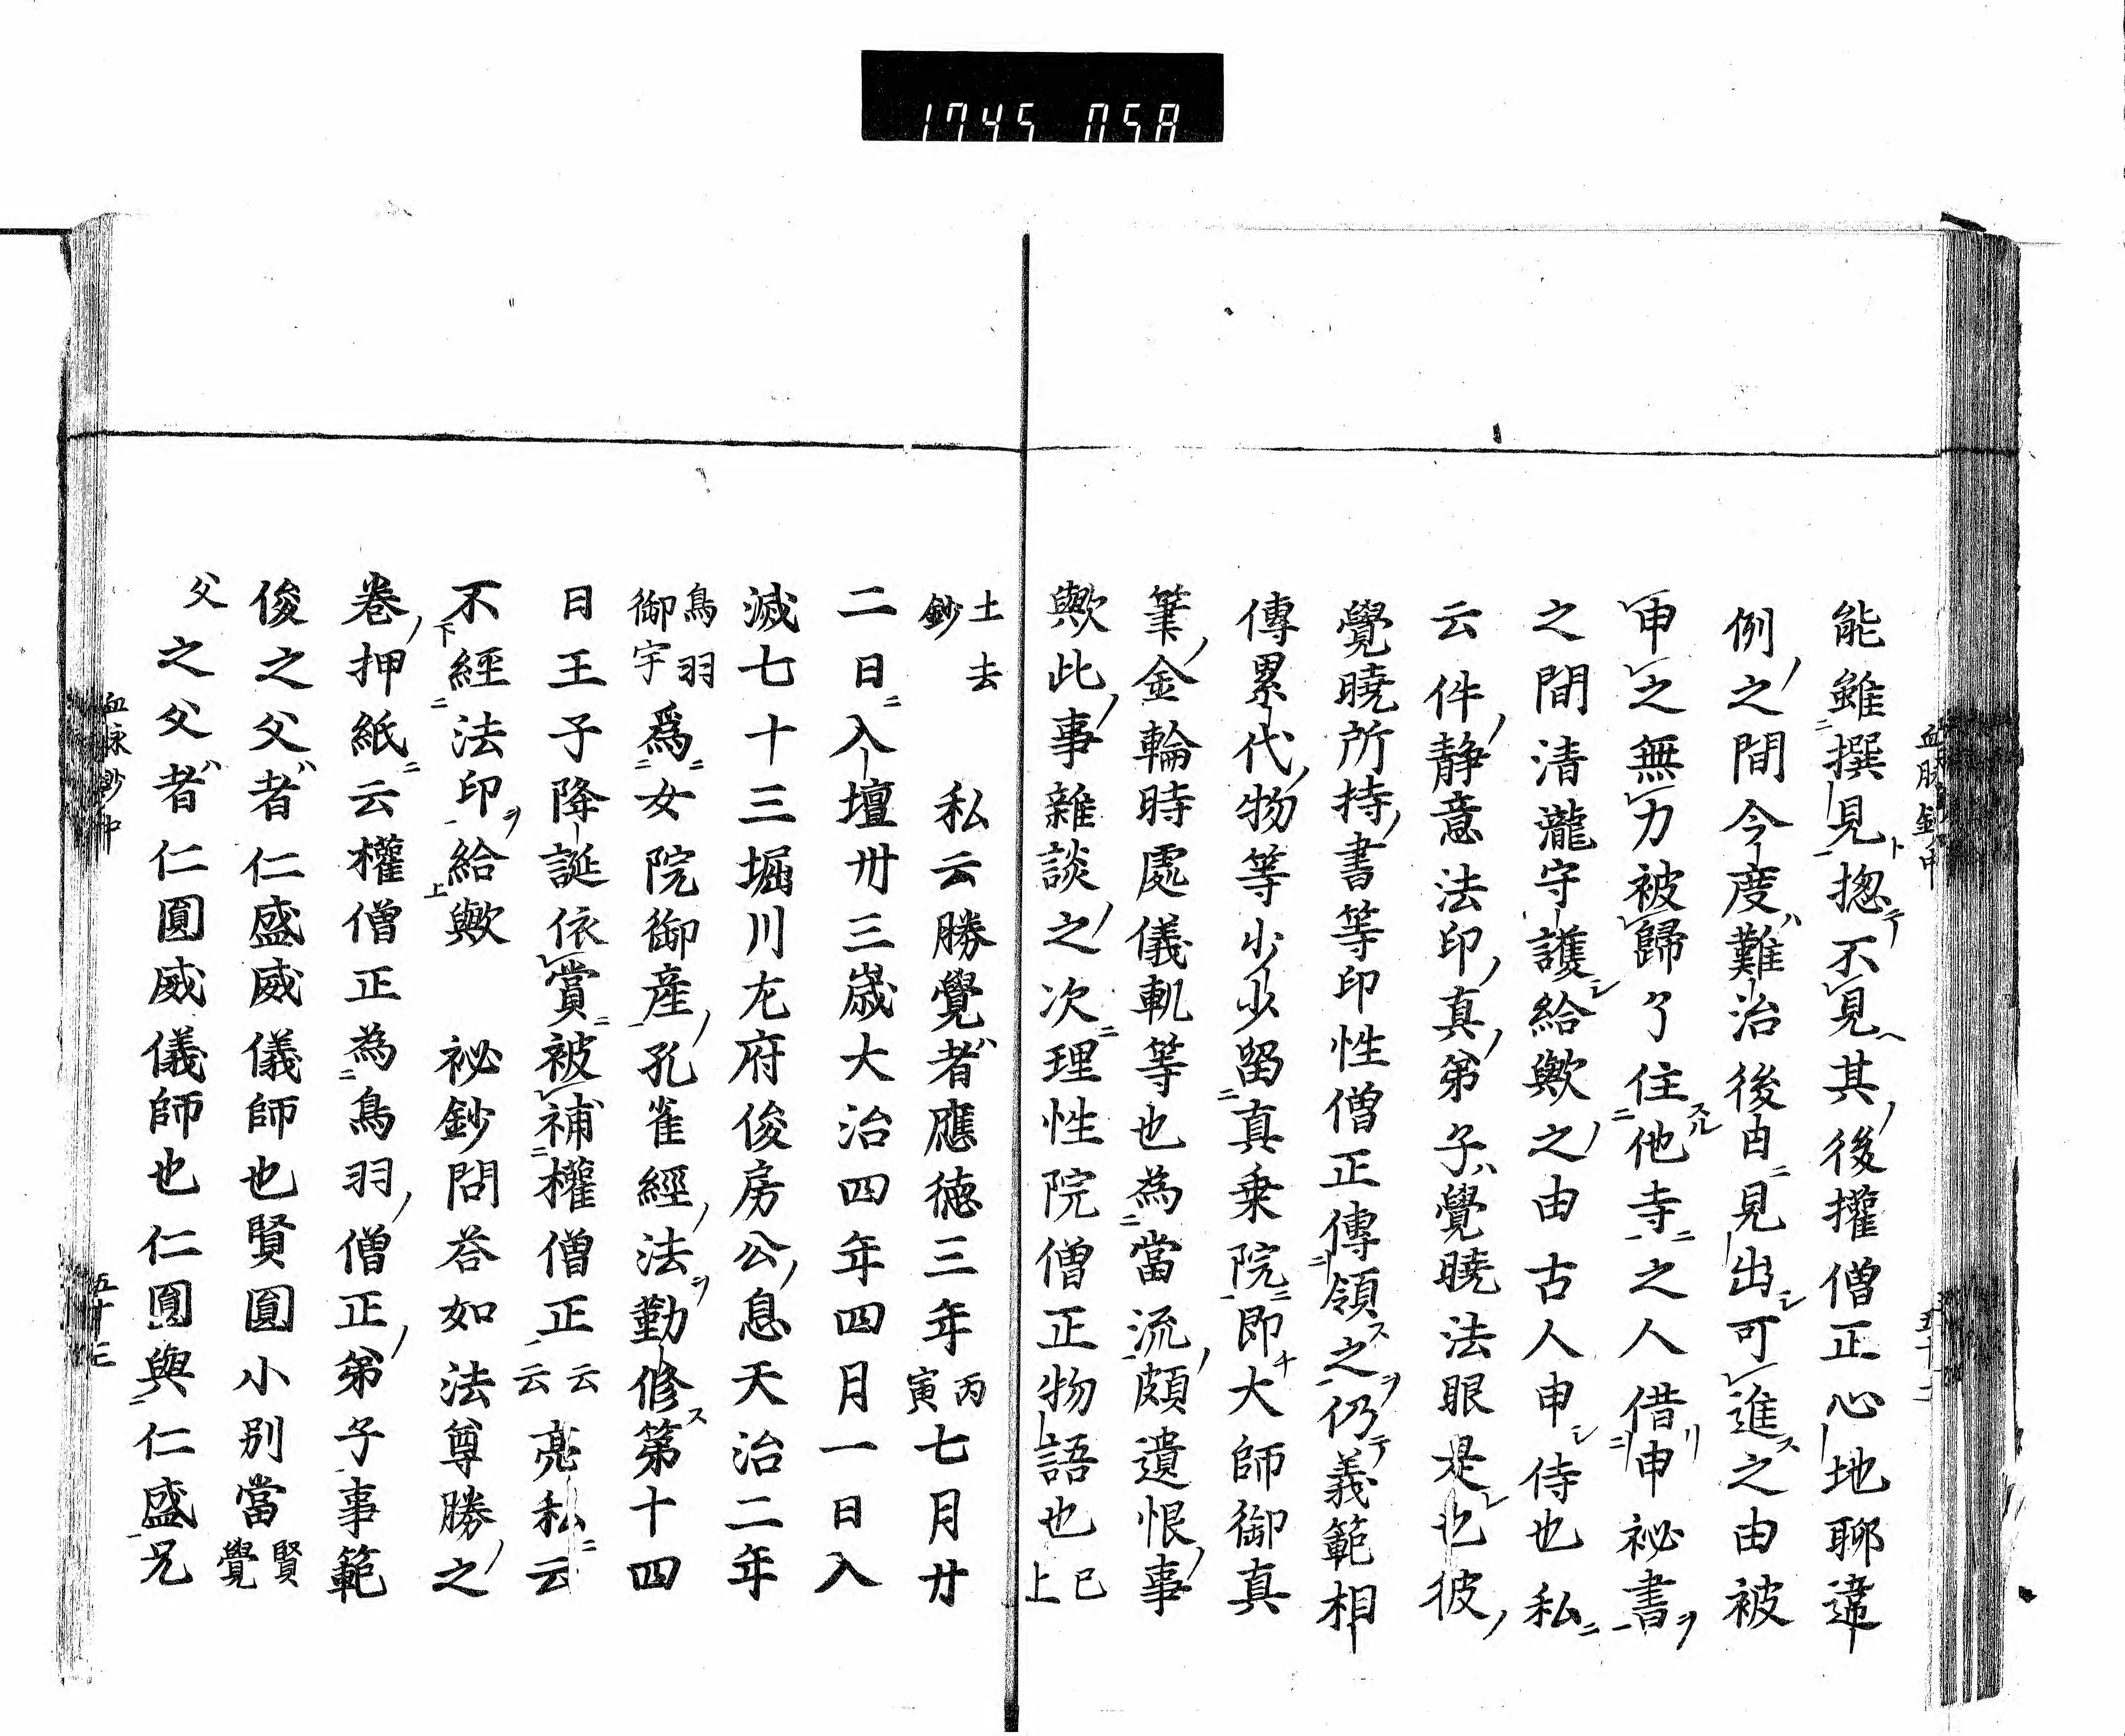 1745 058
能雖撰見惚不見其後權僧正心地聊違
例之間今度難治後日見出可進之由被
申之無力被歸了住他寺之人借申祕書
之間清瀧守護給歟之由古人申侍也私
云件静意法印真弟子覺曉法眼是也彼
覺曉所持書等印性僧正傳領之仍義範相
傳累代物等少少留真乗院即大師御真
筆金輪時處儀軌等也為當流頗遺恨事
歟此事雜談之次理性院僧正物語也已上
土去鈔 私云勝覺者應徳三年丙寅七月廿
二日入壇卅三歳大治四年四月一日入
滅七十三堀川左府俊房公息天治二年
鳥羽御宇爲女院御産孔雀經法勤修第十四
日王子降誕依賞被補權僧正云云亮私云
不經法印給歟 祕鈔問荅如法尊勝之
巻押紙云權僧正為鳥羽僧正弟子事範
俊之父者仁盛威儀師也賢圓小別當賢覺
父之父者仁圓威儀師也仁圓與仁盛兄
血脉鈔中
五十二
血脉鈔中
五十三